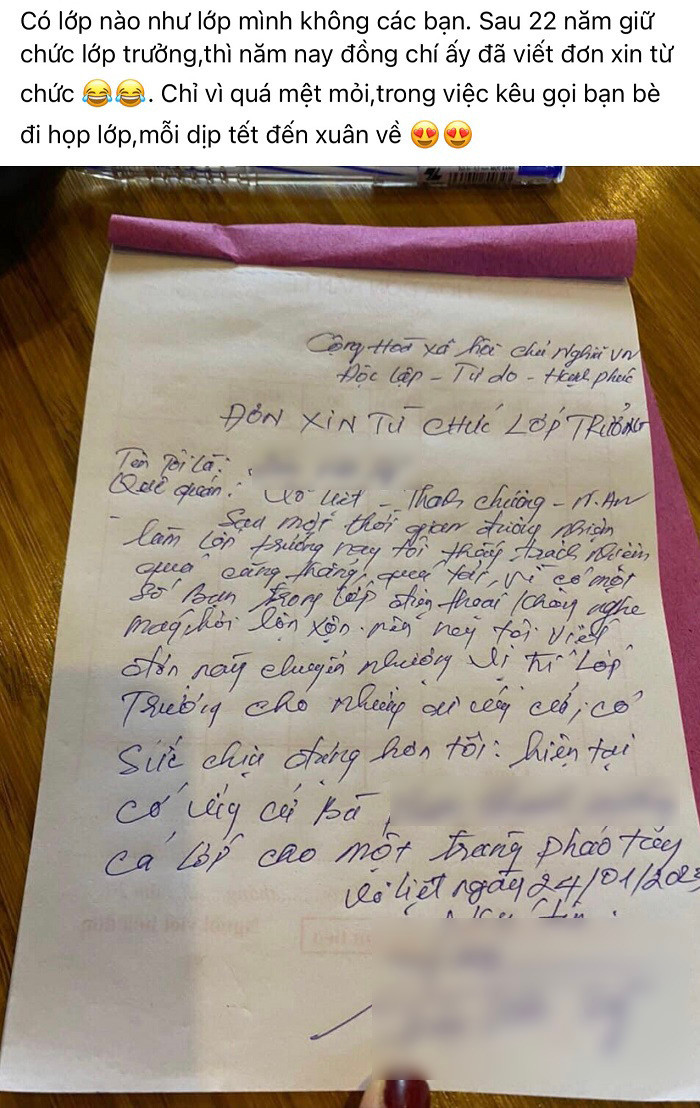 Có lớp nào như lớp mình không các bạn. Sau 22 năm giữ
chức lớp trưởng,thì năm nay đồng chí ấy đã viết đơn xin từ
chức 😂😂. Chỉ vì quá mệt mỏi,trong việc kêu gọi bạn bè
đi họp lớp,mỗi dịp tết đến xuân về 😍😍
Cộng Hoà xã hội chủ Nghĩa VN
Độc lập - Tự do - Hạnh phúc
ĐƠN XIN TỪ CHỨC LỚP TRƯỞNG
Tên Tôi Là:
Quê quán: Võ Liệt - Thanh chương - N.An
- Sau một thời gian đường nhiệm
làm Lớp trưởng nay tôi thấy trách nhiệm
quá căng thẳng, quá tải, vì có một
số Bạn trong lớp điện thoại không nghe
máy, hỏi lộn xộn. nên nay tôi viết
đơn này chuyển nhượng vị trí Lớp
Trưởng cho những ai ứng cử, có
Sức chịu đựng hơn tôi: hiện tại
có ứng cử Bà
cả Lớp cho một tràng pháo tay
Võ Liệt ngày 24/01/2023